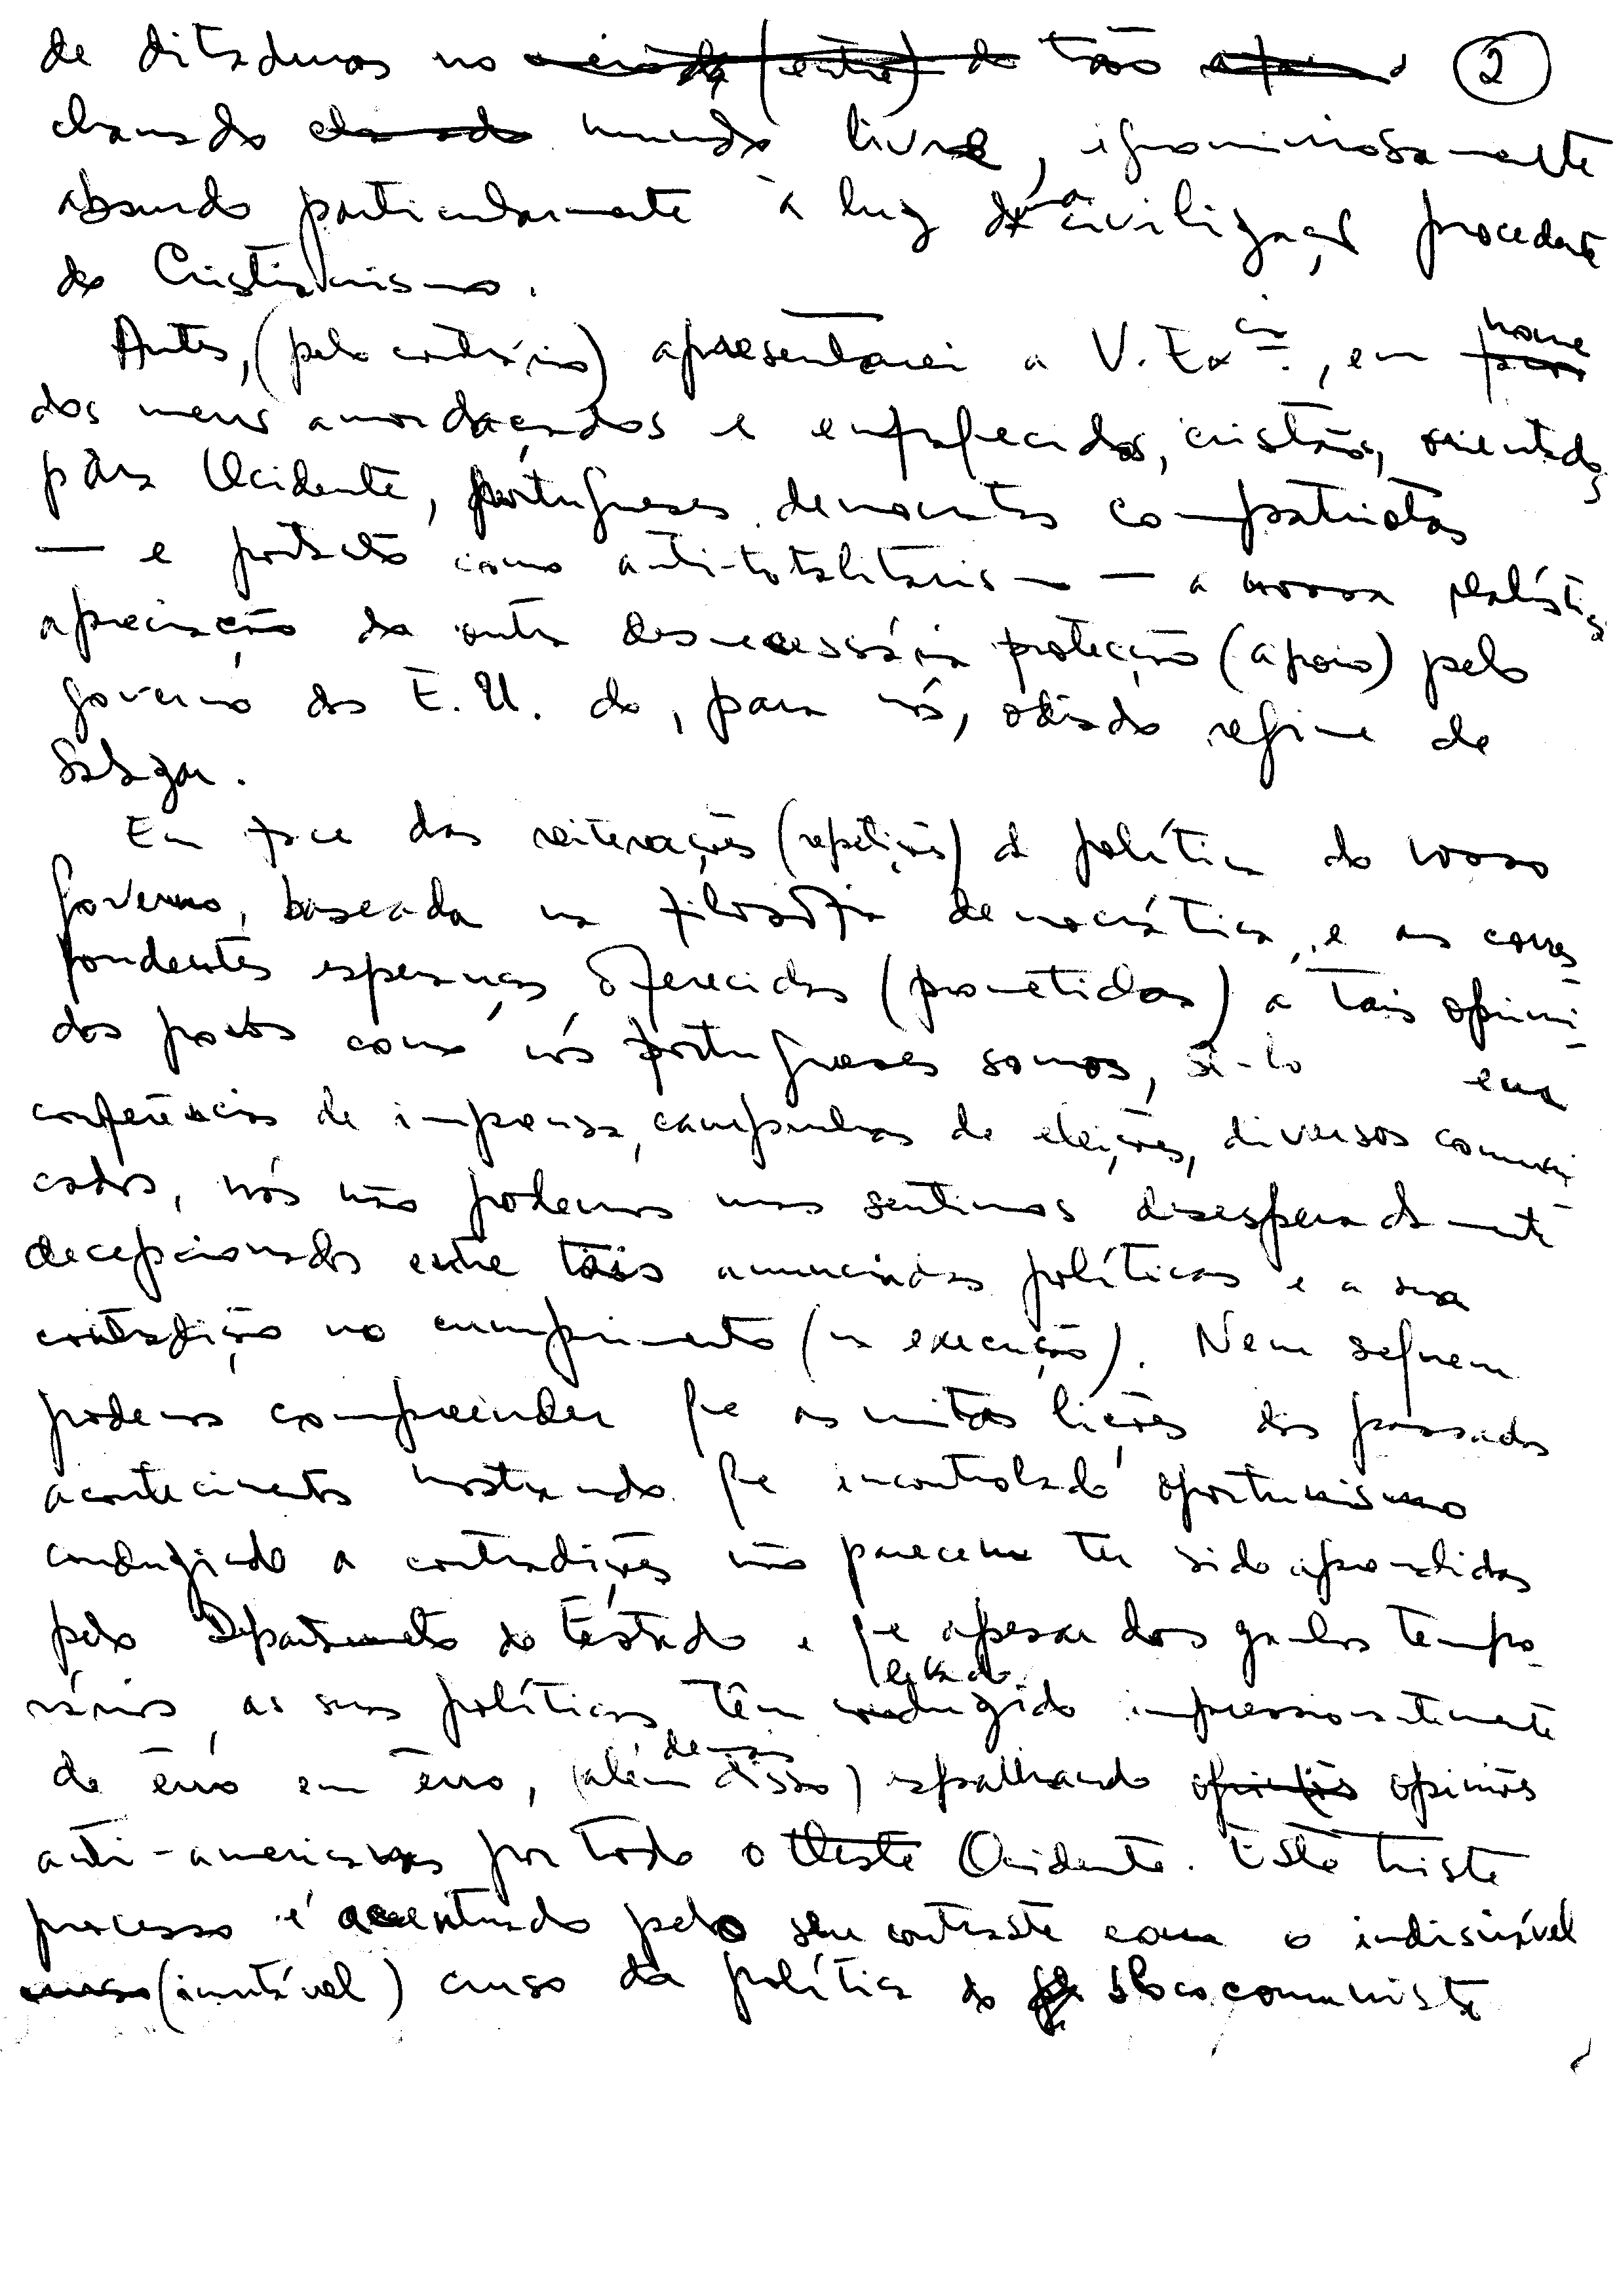 de ditaduras no meio da (entre) do tão a 2
chamado chamado mundo livre, ignominiosamente
absurdo particularmente à luz duma civilização procedente
do Cristianismo.
Antes, (pelo contrário) apresentarei a V. Exciª., em nome
dos meus amordaçados e enfraquecidos, cristãos, orientados
pára Ocidente, portugueses democratas compatriotas
— e portanto como anti-totalitarismo — a nossa realística
apreciação da outra desnecessária protecção (apoio) pelo
govêrno dos E.U. do, para nós, odiado regime de
Salazar.
Em face das reiterações (repetições) da política do vosso
govêrno, baseada na filosofia democrática, e as corres-
pondentes esperanças oferecidas (prometidas) a tais oprimi-
dos povos como nós portugueses somos, sê-lo em
conferências de imprensa, campanhas de eleições, diversos comuni-
cados, nós não podemos mas sentimos desesperadamente
decepcionados entre tais anunciadas políticas e a sua
contradição no cumprimento (na execução). Nem sequer
podemos compreender que as muitas lições dos passados
acontecimentos mostrando que incontrolado oportunismo
conduzindo a contradições não parecem ter sido aprendidas
pelo Departamento do Estado e que apesar dos ganhos tempo-
levado
rários, as suas políticas têm conduzido impressionantemente
demais
de êrro em êrro, (além disso) espalhando opiniões opiniões
anti-americanas por todo o Oeste Ocidente. Este triste
processo é acentuado pelo seu contraste com o indisviável
curso (imutável) curso da política do bloco comunista